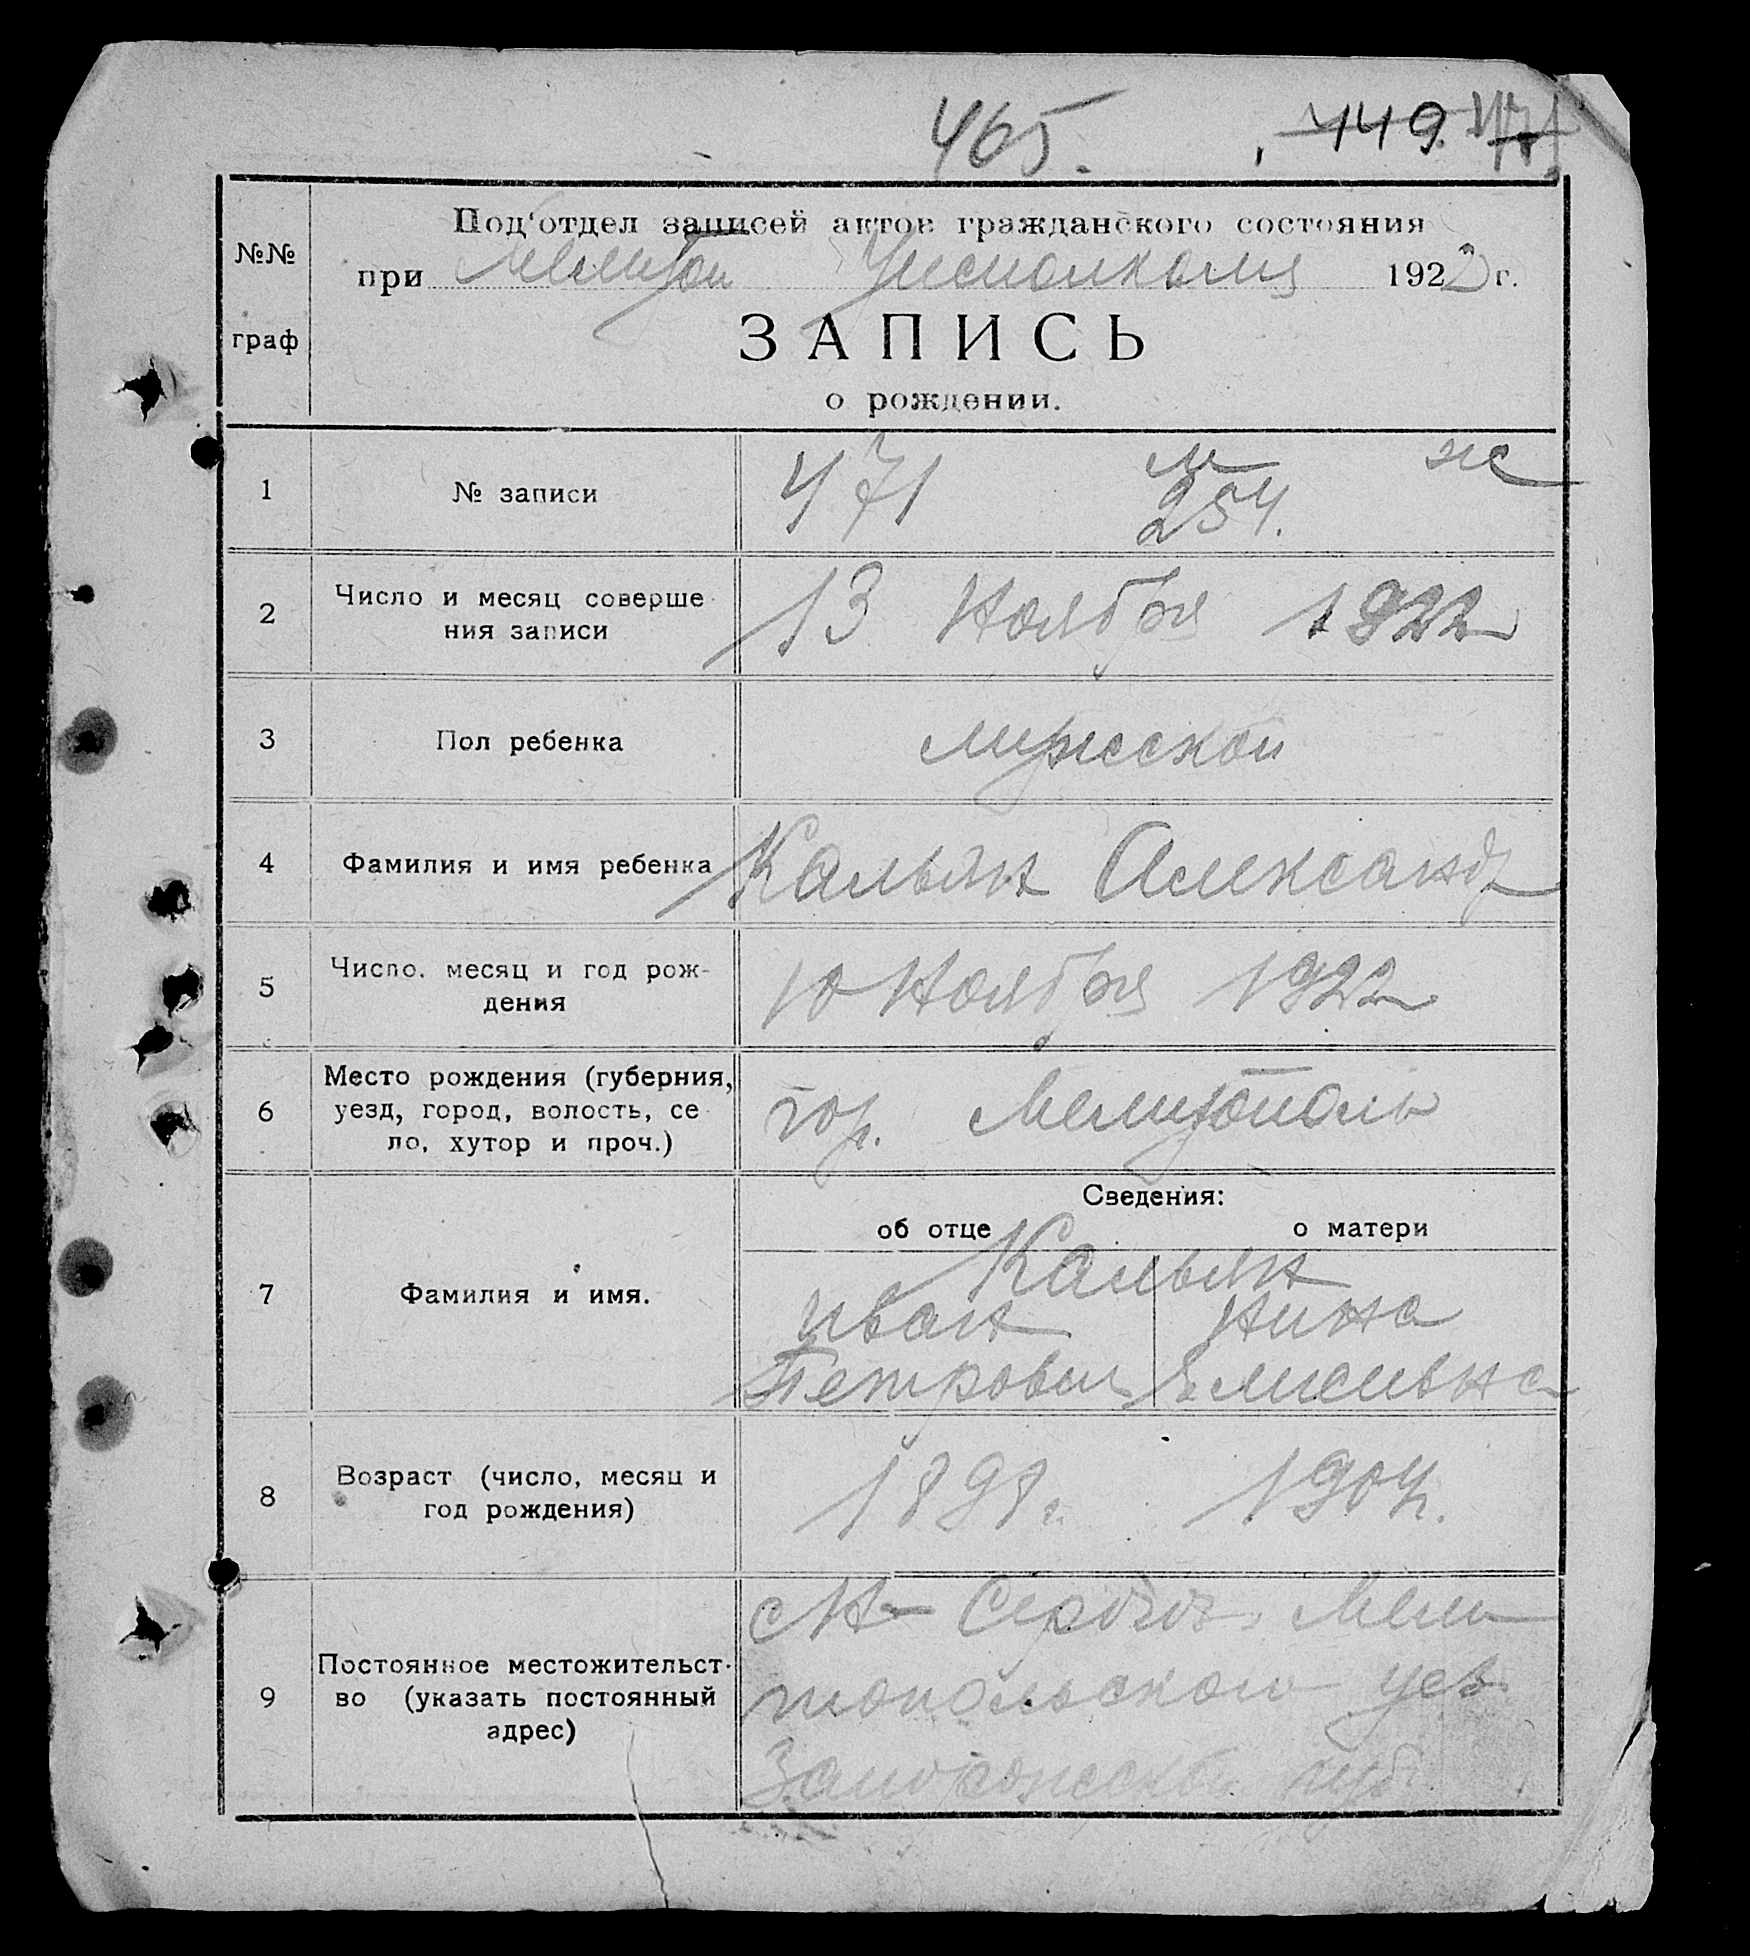 465.
449. 471
Под'отдел записей актов гражданского состояния
№№
при Мелитоп Уисполкома 1922 г.
граф
ЗАПИСЬ
о рождении.
м ж
1 № записи 471 254.
2 Число и месяц соверше
ния записи 13 Ноября 1922
3 Пол ребенка мужской
4 Фамилия и имя ребенка Кальян Александр
5 Число, месяц и год рож-
дения 10 Ноября 1922
Место рождения (губерния,
6 уезд, город, волость, се
ло, хутор и проч.) гор. Мелитополь
Сведения:
об отце о матери
Кальян
7 Фамилия и имя. Иван Нина
Петрович
8 Возраст (число, месяц и
год рождения) 1898г. 1904г.
Мели
Постоянное местожительст-
9 во (указать постоянный топольского уез.
адрес)
Запорожской губ.